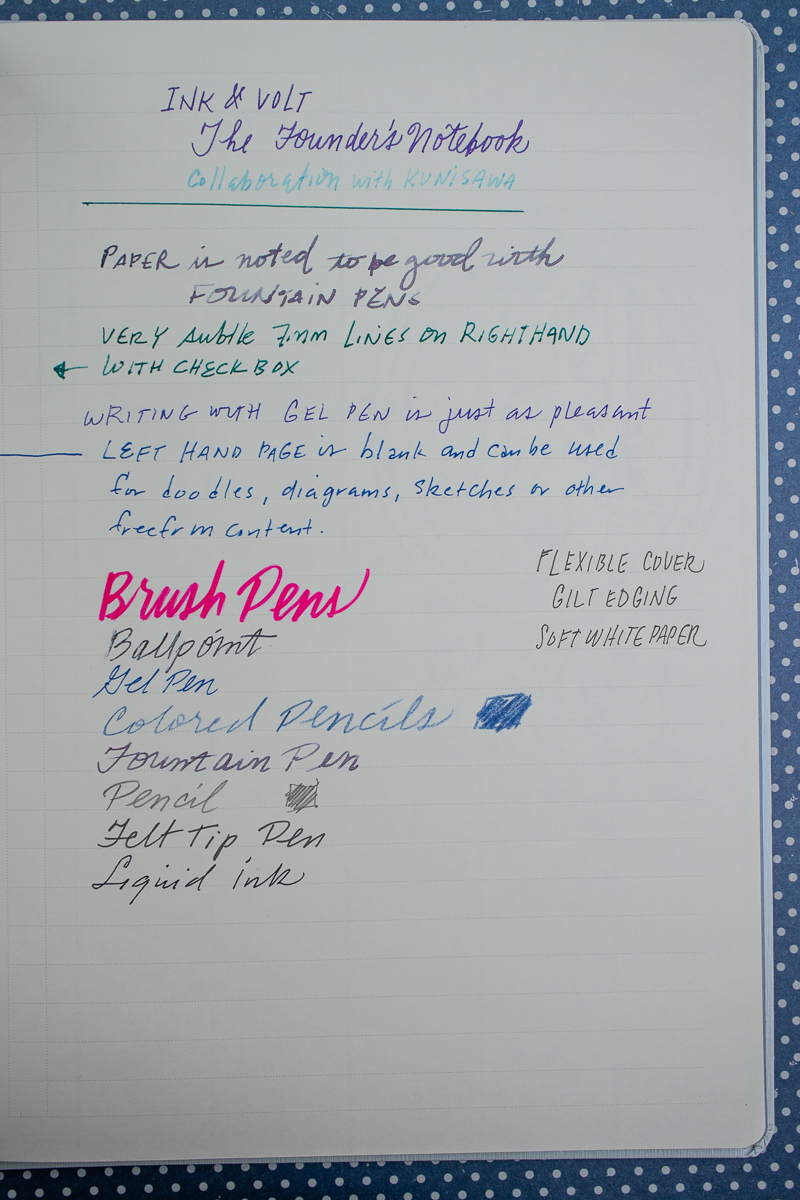 INK & VOLT
The Founder's Notebook
Collaboration with KUNISAWA
PAPER is noted to be good with
FOUNTAIN PENS
VERY subtle 7mm LINES on RIGHTHAND
WITH CHECKBOX
WRITING WITH GEL PEN is just as pleasant
LEFT HAND PAGE is blank and can be used
for doodles, diagrams, sketches or other
freefrm content.
FLEXIBLE COVER
GILT EDGING
SOFT WHITE PAPER
Brush Pens
Ballpoint
Gel Pen
Colored Pencils
Fountain Pen
Pencil
Felt Tip Pen
Liquid ink